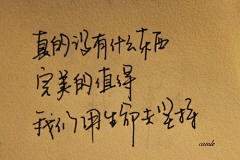 真的没有什么东西
完美的值得
我们用生命去坚持